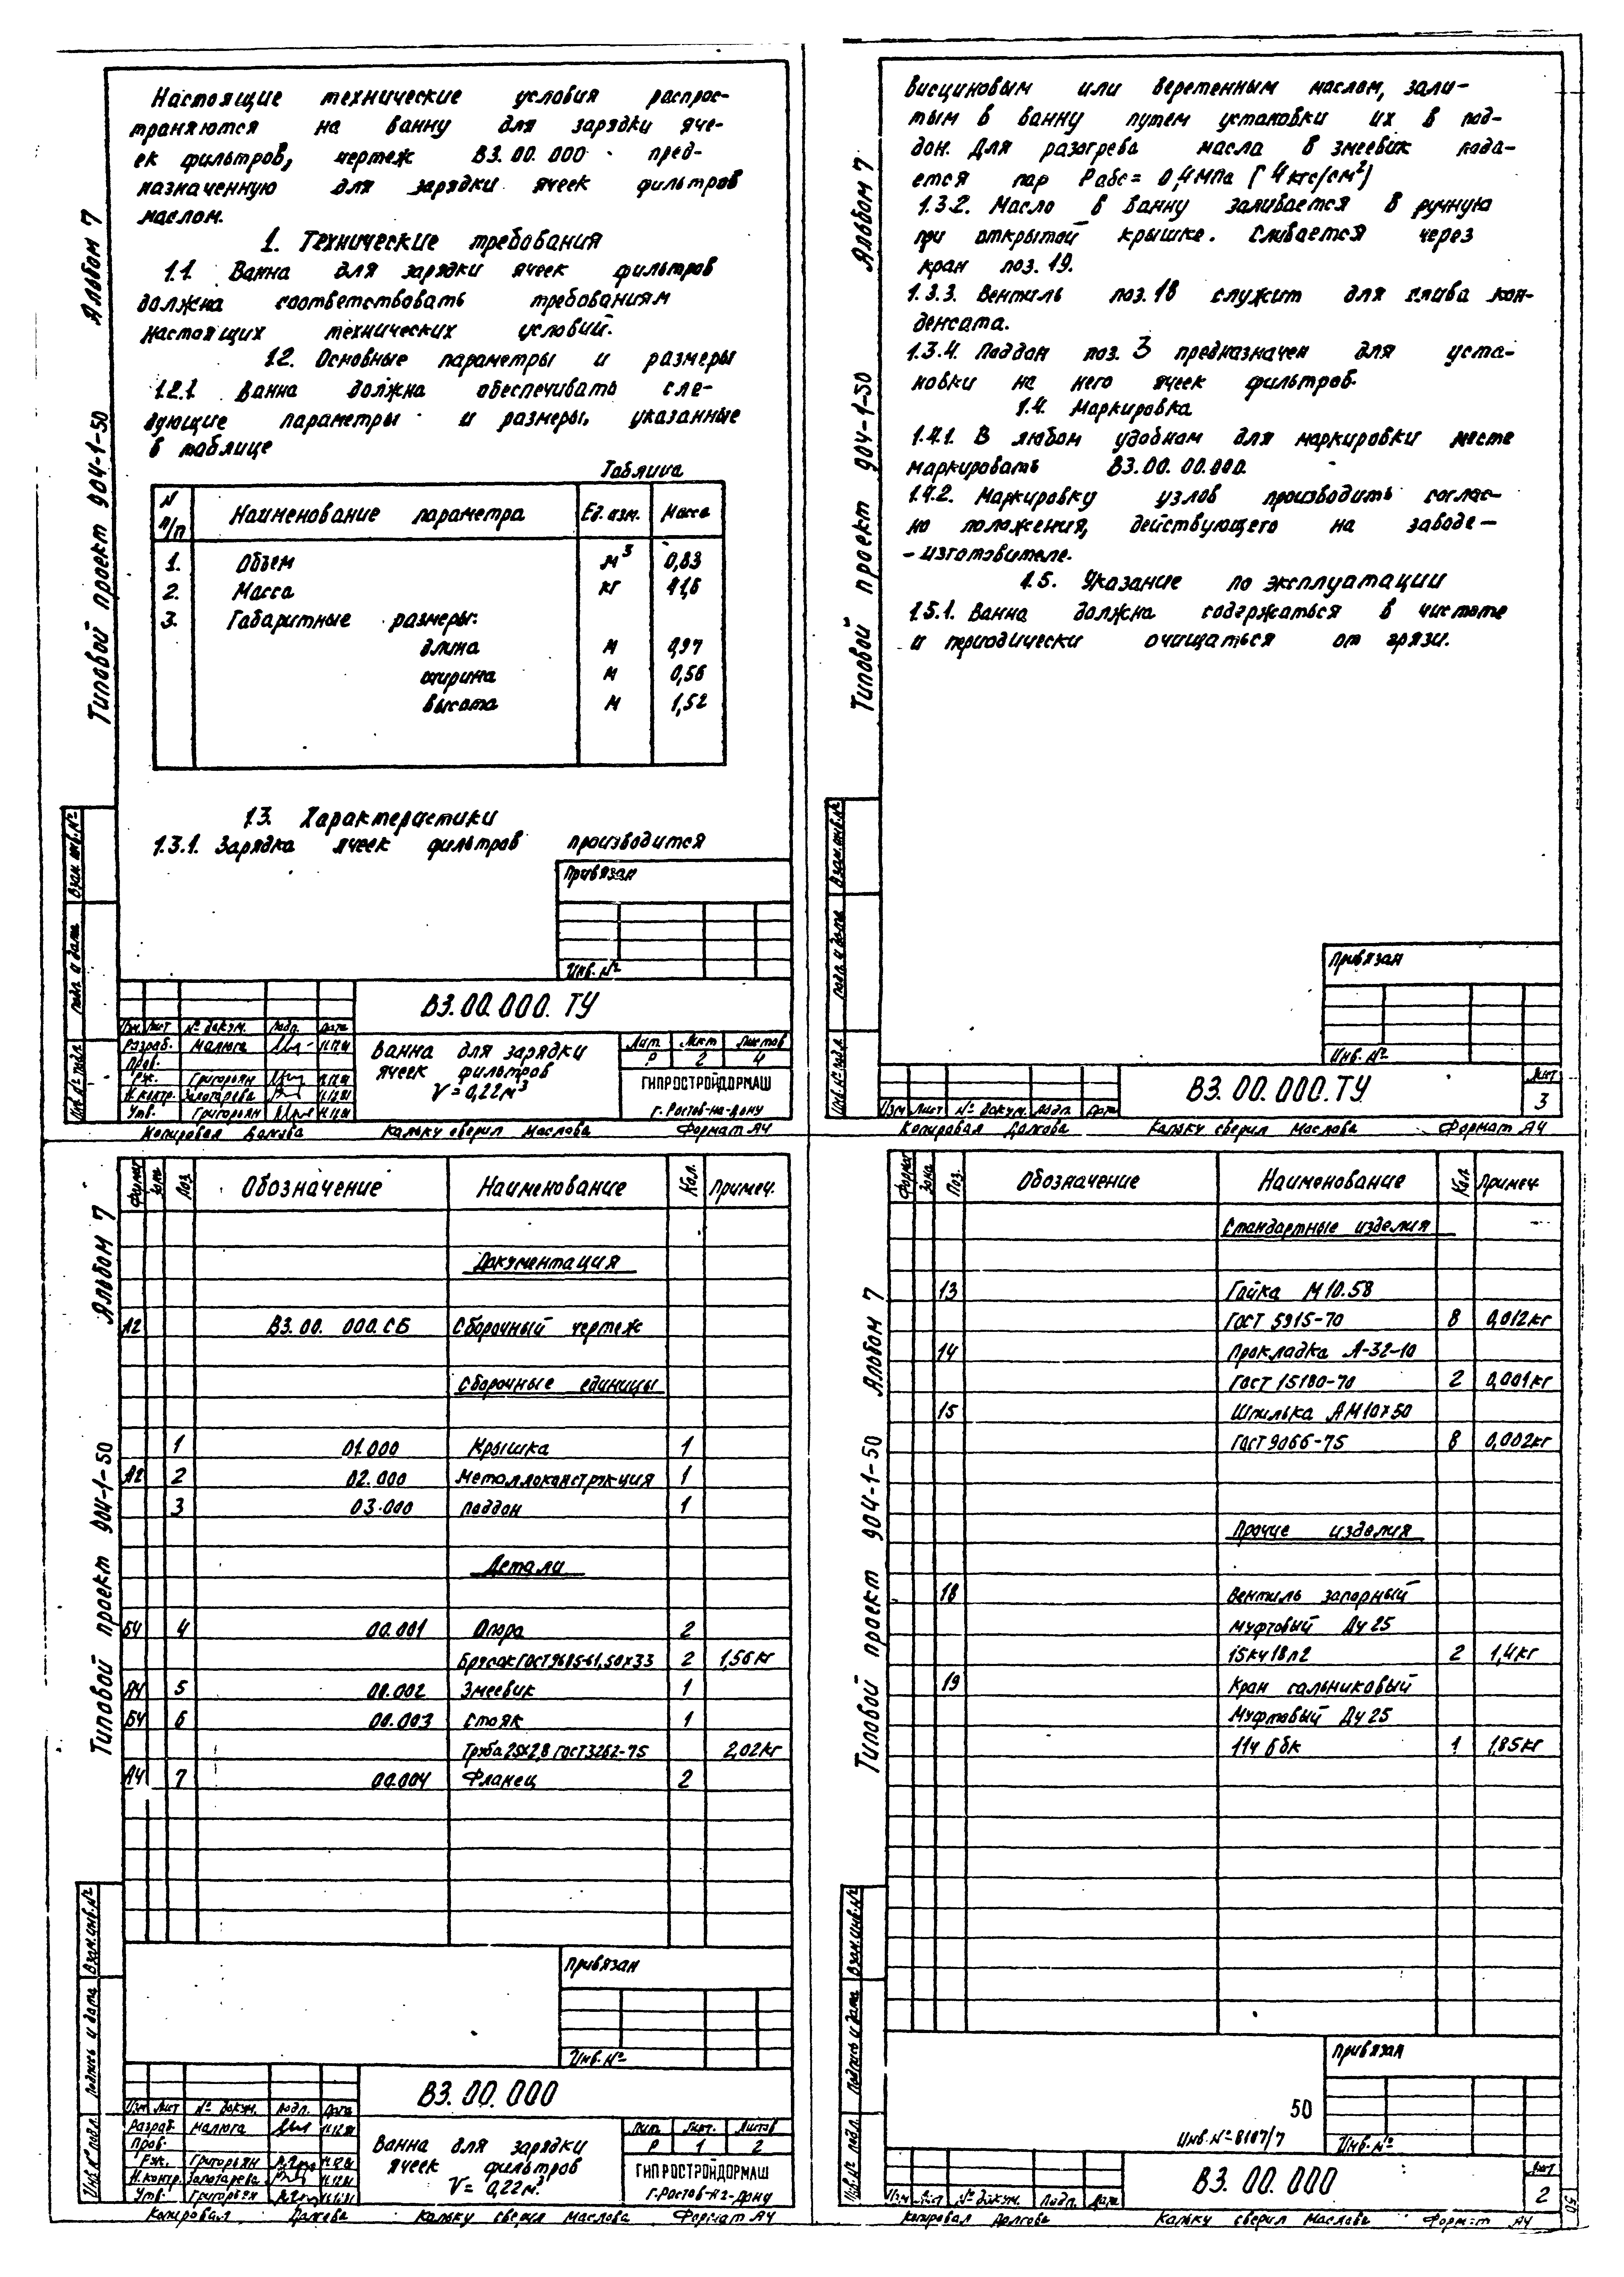 Настоящие технические условия распрос-
траняются на ванну для зарядки яче-
ек фильтров, чертеж В3.00.000 пред-
назначенную для зарядки ячеек фильтров
маслом.
1. Технические требования
1.1. Ванна для зарядки ячеек фильтров
должна соответствовать требованиям
настоящих технических условий.
1.2. Основные параметры и размеры
1.2.1 Ванна должна обеспечивать сле-
дующие параметры и размеры, указанные
в таблице
Таблица
N п/п Наименование параметра Ед. изм. Масса
1. Объем м³ 0,83
2. Масса кг
3. Габаритные размеры:
длина м 0,97
ширина м 0,56
высота м 1,52
1.3. Характеристики
1.3.1. Зарядка ячеек фильтров производится
Привязан
Инв. №
В3.00.000.ТУ
Изм. Лист № докум. Подп. Дата
Разраб. Малюга
Пров.
Рук. Григорьян
Н.контр. Золотарева
Утв. Григорьян
Ванна для зарядки
ячеек фильтров
V = 0,22м³
Лит. Лист Листов
Р 2 4
ГИПРОСТРОЙДОРМАШ
г. Ростов-на-Дону
Копировал Кальку сверил Маслова Формат А4
Типовой проект 904-1-50 Альбом 7
Инв. № подл. Подп. и дата Взам. инв. №
висциновым или веретенным маслом, зали-
тым в ванну путем установки их в под-
дон. Для разогрева масла в змеевик пода-
ется пар Рабс= 0,4МПа [4кгс/см²]
1.3.2. Масло в ванну заливается в ручную
при открытой крышке. Сливается через
кран поз. 19.
1.3.3. Вентиль поз. 18 служит для слива кон-
денсата.
1.3.4. Поддон поз. 3 предназначен для уста-
новки на него ячеек фильтров.
1.4. Маркировка
1.4.1. В любом удобном для маркировки месте
маркировать В3.00.00.000.
1.4.2. Маркировку узлов производить соглас-
но положения, действующего на заводе-
-изготовителе.
1.5. Указание по эксплуатации
1.5.1. Ванна должна содержаться в чистоте
и периодически очищаться от грязи.
Привязан
Инв. №
В3.00.000.ТУ
Лист
3
Изм Лист № докум. Подп. Дата
Копировал Долгова Кальку сверил Маслова Формат А4
Типовой проект 904-1-50 Альбом 7
Инв. № подл. Подп. и дата Взам. инв. №
Формат Зона Поз. Обозначение Наименование Кол. Примеч.
Документация
А2 В3.00.000.СБ Сборочный чертеж
Сборочные единицы
1 01.000 Крышка 1
А2 2 02.000 Металлоконструкция 1
3 03.000 Поддон 1
Детали
БЧ 4 00.001 Опора 2
2 1,56кг
А4 5 00.002 Змеевик 1
БЧ 6 00.003 Стояк 1
Труба 25х2,8 ГОСТ 3262-75 2,02кг
А4 7 00.004 Фланец 2
Привязан
Инв. №
В3.00.000
Изм Лист № докум. Подп. Дата
Разраб. Малюга
Пров.
Рук. Григорьян
Н.контр. Золотарева
Утв. Григорьян
Ванна для зарядки
ячеек фильтров
V = 0,22м³
Лит. Лист. Листов
Р 1 2
ГИПРОСТРОЙДОРМАШ
г. Ростов-на-Дону
Копировал Кальку сверил Маслова Формат А4
Типовой проект 904-1-50 Альбом 7
Инв. № подл. Подпись и дата Взам. инв. №
Формат Зона Поз. Обозначение Наименование Кол. Примеч.
Стандартные изделия
13 Гайка М10.58
ГОСТ 5915-70 8 0,012кг
14 Прокладка А-32-10
ГОСТ 15180-70 2 0,001кг
15 Шпилька АМ10х50
ГОСТ 9066-75 8 0,002кг
Прочие изделия
18 Вентиль запорный
муфтовый Ду 25
15кч18п2 2 1,4кг
19 Кран сальниковый
муфтовый Ду 25
11ч6бк 1 1,85кг
Привязан
50
Инв. № 8187/7
Инв. №
В3.00.000
Лист
2
Изм Лист № докум. Подп. Дата
Копировал Долгова Кальку сверил Маслова Формат А4
Типовой проект 904-1-50 Альбом 7
Инв. № подл. Подпись и дата Взам. инв. №
50